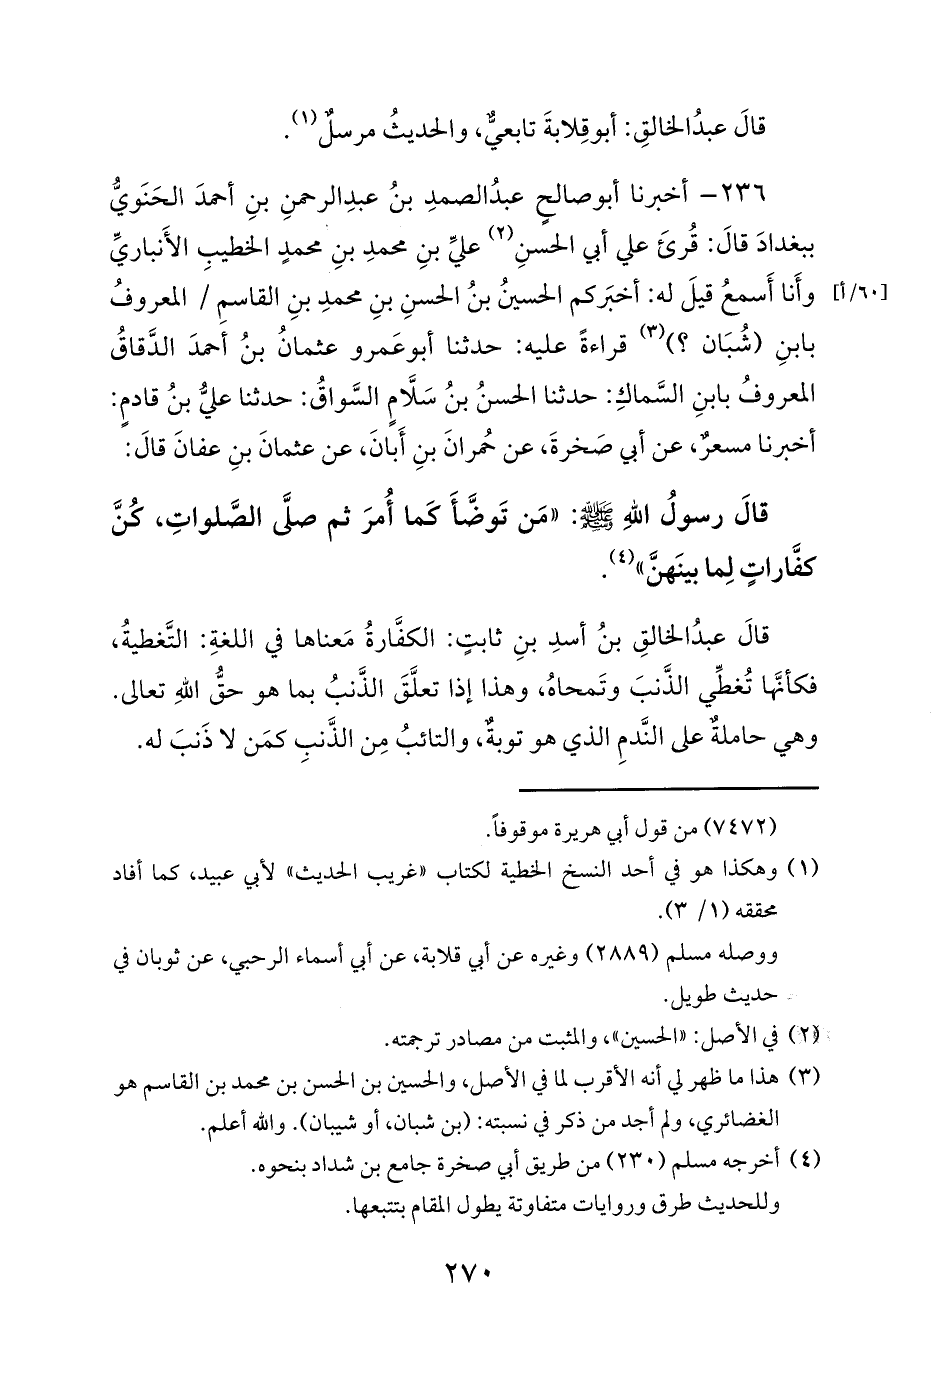 قالَ عبدُالخالقِ: أبوقِلابةَ تابعيٌّ، والحديثُ مرسلٌ(١).
٢٣٦- أخبرنا أبوصالحٍ عبدُالصمدِ بنُ عبدِالرحمنِ بنِ أحمدَ الحَنَويُّ
ببغدادَ قالَ: قُرئَ علي أبي الحسنِ(٢) عليِّ بنِ محمدِ بنِ محمدٍ الخطيبِ الأَنباريِّ
وأَنا أَسمعُ قيلَ له: أخبَركم الحسينُ بنُ الحسنِ بنِ محمدِ بنِ القاسمِ / المعروفُ [٦٠/أ]
بابنِ (شُبَان ؟)(٣) قراءةً عليه: حدثنا أبوعَمرو عثمانُ بنُ أحمدَ الدَّقاقُ
المعروفُ بابنِ السَّماكِ: حدثنا الحسنُ بنُ سَلَّامٍ السَّواقُ: حدثنا عليُّ بنُ قادمٍ:
أخبرنا مسعرٌ، عن أبي صَخرةَ، عن حُمرانَ بنِ أَبانَ، عن عثمانَ بنِ عفانَ قالَ:
قالَ رسولُ اللهِ ﷺ: «مَن تَوضَّأَ كَما أُمرَ ثم صلَّى الصَّلواتِ، كُنَّ
كفَّاراتٍ لِما بينَهنَّ»(٤).
قالَ عبدُالخالقِ بنُ أسدِ بنِ ثابتٍ: الكفَّارةُ مَعناها في اللغةِ: التَّغطيةُ،
فكأنَّها تُغطِّي الذَّنبَ وتَمحاهُ، وهذا إذا تعلَّقَ الذَّنبُ بما هو حقُّ اللهِ تعالى.
وهي حاملةٌ على النَّدمِ الذي هو توبةٌ، والتائبُ مِن الذَّنبِ كمَن لا ذَنبَ له.
(٧٤٧٢) من قول أبي هريرة موقوفاً.
(١) وهكذا هو في أحد النسخ الخطية لكتاب «غريب الحديث» لأبي عبيد، كما أفاد
محققه (١/ ٣).
ووصله مسلم (٢٨٨٩) وغيره عن أبي قلابة، عن أبي أسماء الرحبي، عن ثوبان في
حديث طويل.
(٢) في الأصل: «الحسين»، والمثبت من مصادر ترجمته.
(٣) هذا ما ظهر لي أنه الأقرب لما في الأصل، والحسين بن الحسن بن محمد بن القاسم هو
الغضائري، ولم أجد من ذكر في نسبته: (بن شبان، أو شيبان). والله أعلم.
(٤) أخرجه مسلم (٢٣٠) من طريق أبي صخرة جامع بن شداد بنحوه.
وللحديث طرق وروايات متفاوتة يطول المقام بتتبعها.
٢٧٠